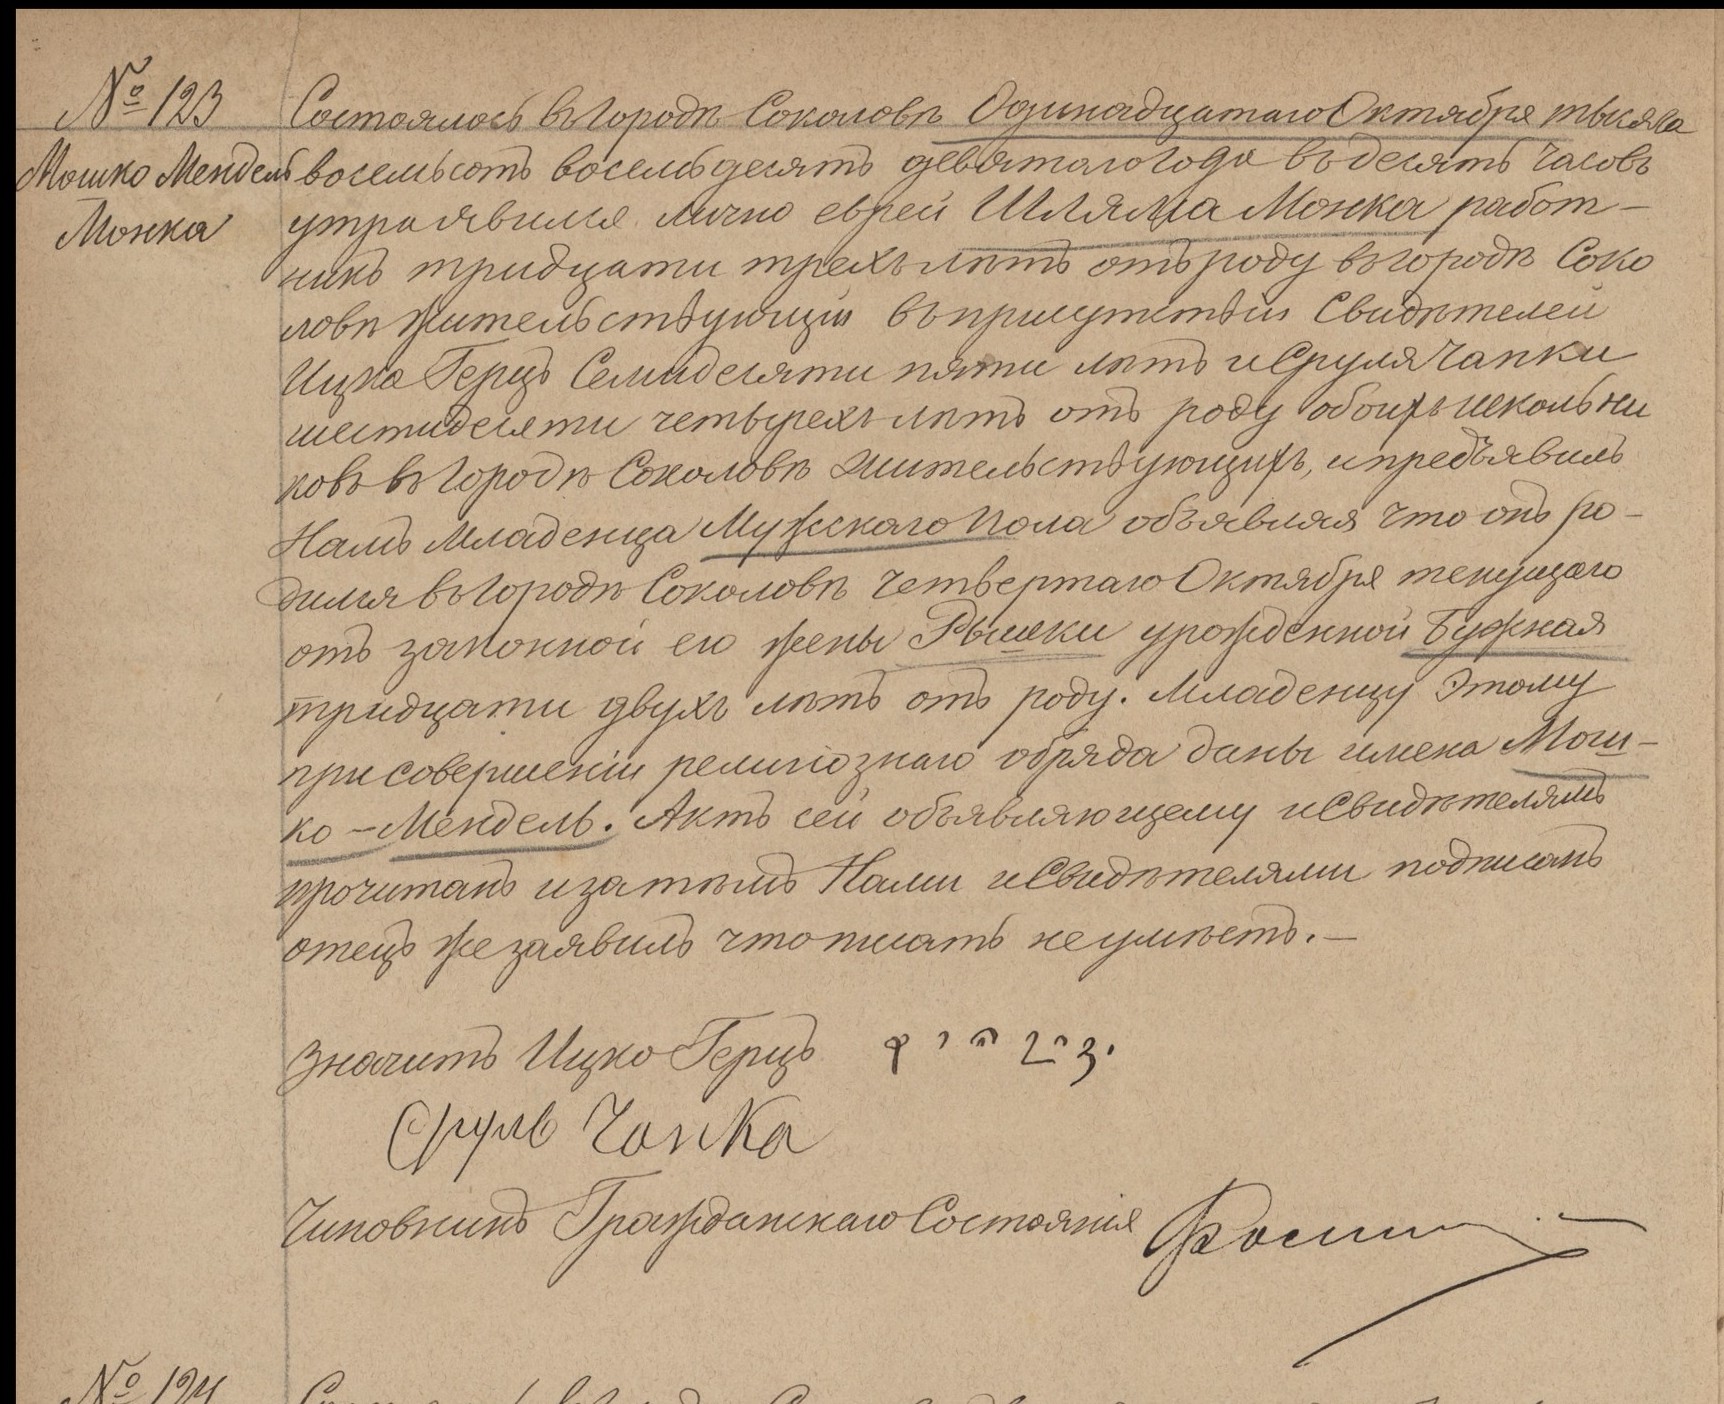 № 123
Мошко Мендель
Монка
Состоялось въ городѣ Соколовѣ Одинадцатаго Октября тысяча
восемьсотъ восемьдесятъ девятаго года въ десять часовъ
утра явился лично еврей Шляма Монка работ-
никъ тридцати трехъ лѣтъ отъ роду въ городѣ Соко
ловѣ жительствующій въ присутствіи Свидѣтелей
Ицка Герцъ Семидесяти пяти лѣтъ и Сруля Чапки
шестидесяти четырехъ лѣтъ отъ роду обоихъ школьни
ковъ въ городѣ Соколовѣ жительствующихъ, и предъявилъ
Намъ Младенца Мужскаго Пола объявляя что онъ ро-
дился въ городѣ Соколовѣ Четвертаго Октября текущаго
отъ законной его жены Рышки урожденной Бужная
тридцати двухъ лѣтъ отъ роду. Младенцу Этому
при совершеніи религіознаго обряда даны имена Мош-
ко-Мендель. Актъ сей объявляющему и Свидѣтелямъ
прочитанъ и затѣмъ Нами и Свидѣтелями подписанъ
отецъ же заявилъ что писать не умѣетъ.—
Значитъ Ицко Герцъ
Сруль Чапка
Чиновникъ Гражданскаго Состоянія
№ 124